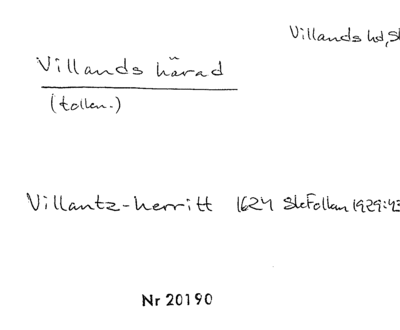 Villands hd, Sk
Villands härad
(tollen.)
Villantz-herritt 1624 SkFollan 1929:43
Nr 20190